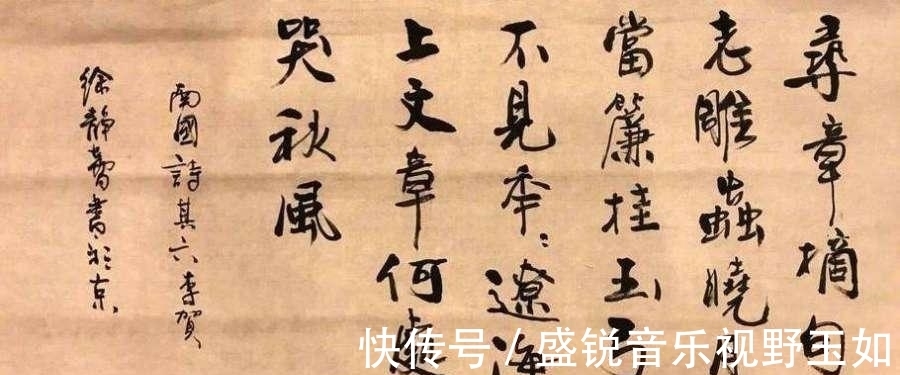 尋章摘句
老雕蟲曉月
當簾挂玉弓
不見年〻遼海
上文章何處
哭秋風
南國詩其六李賀
徐静蕾書於京
快传号 / 盛锐音乐视野玉如